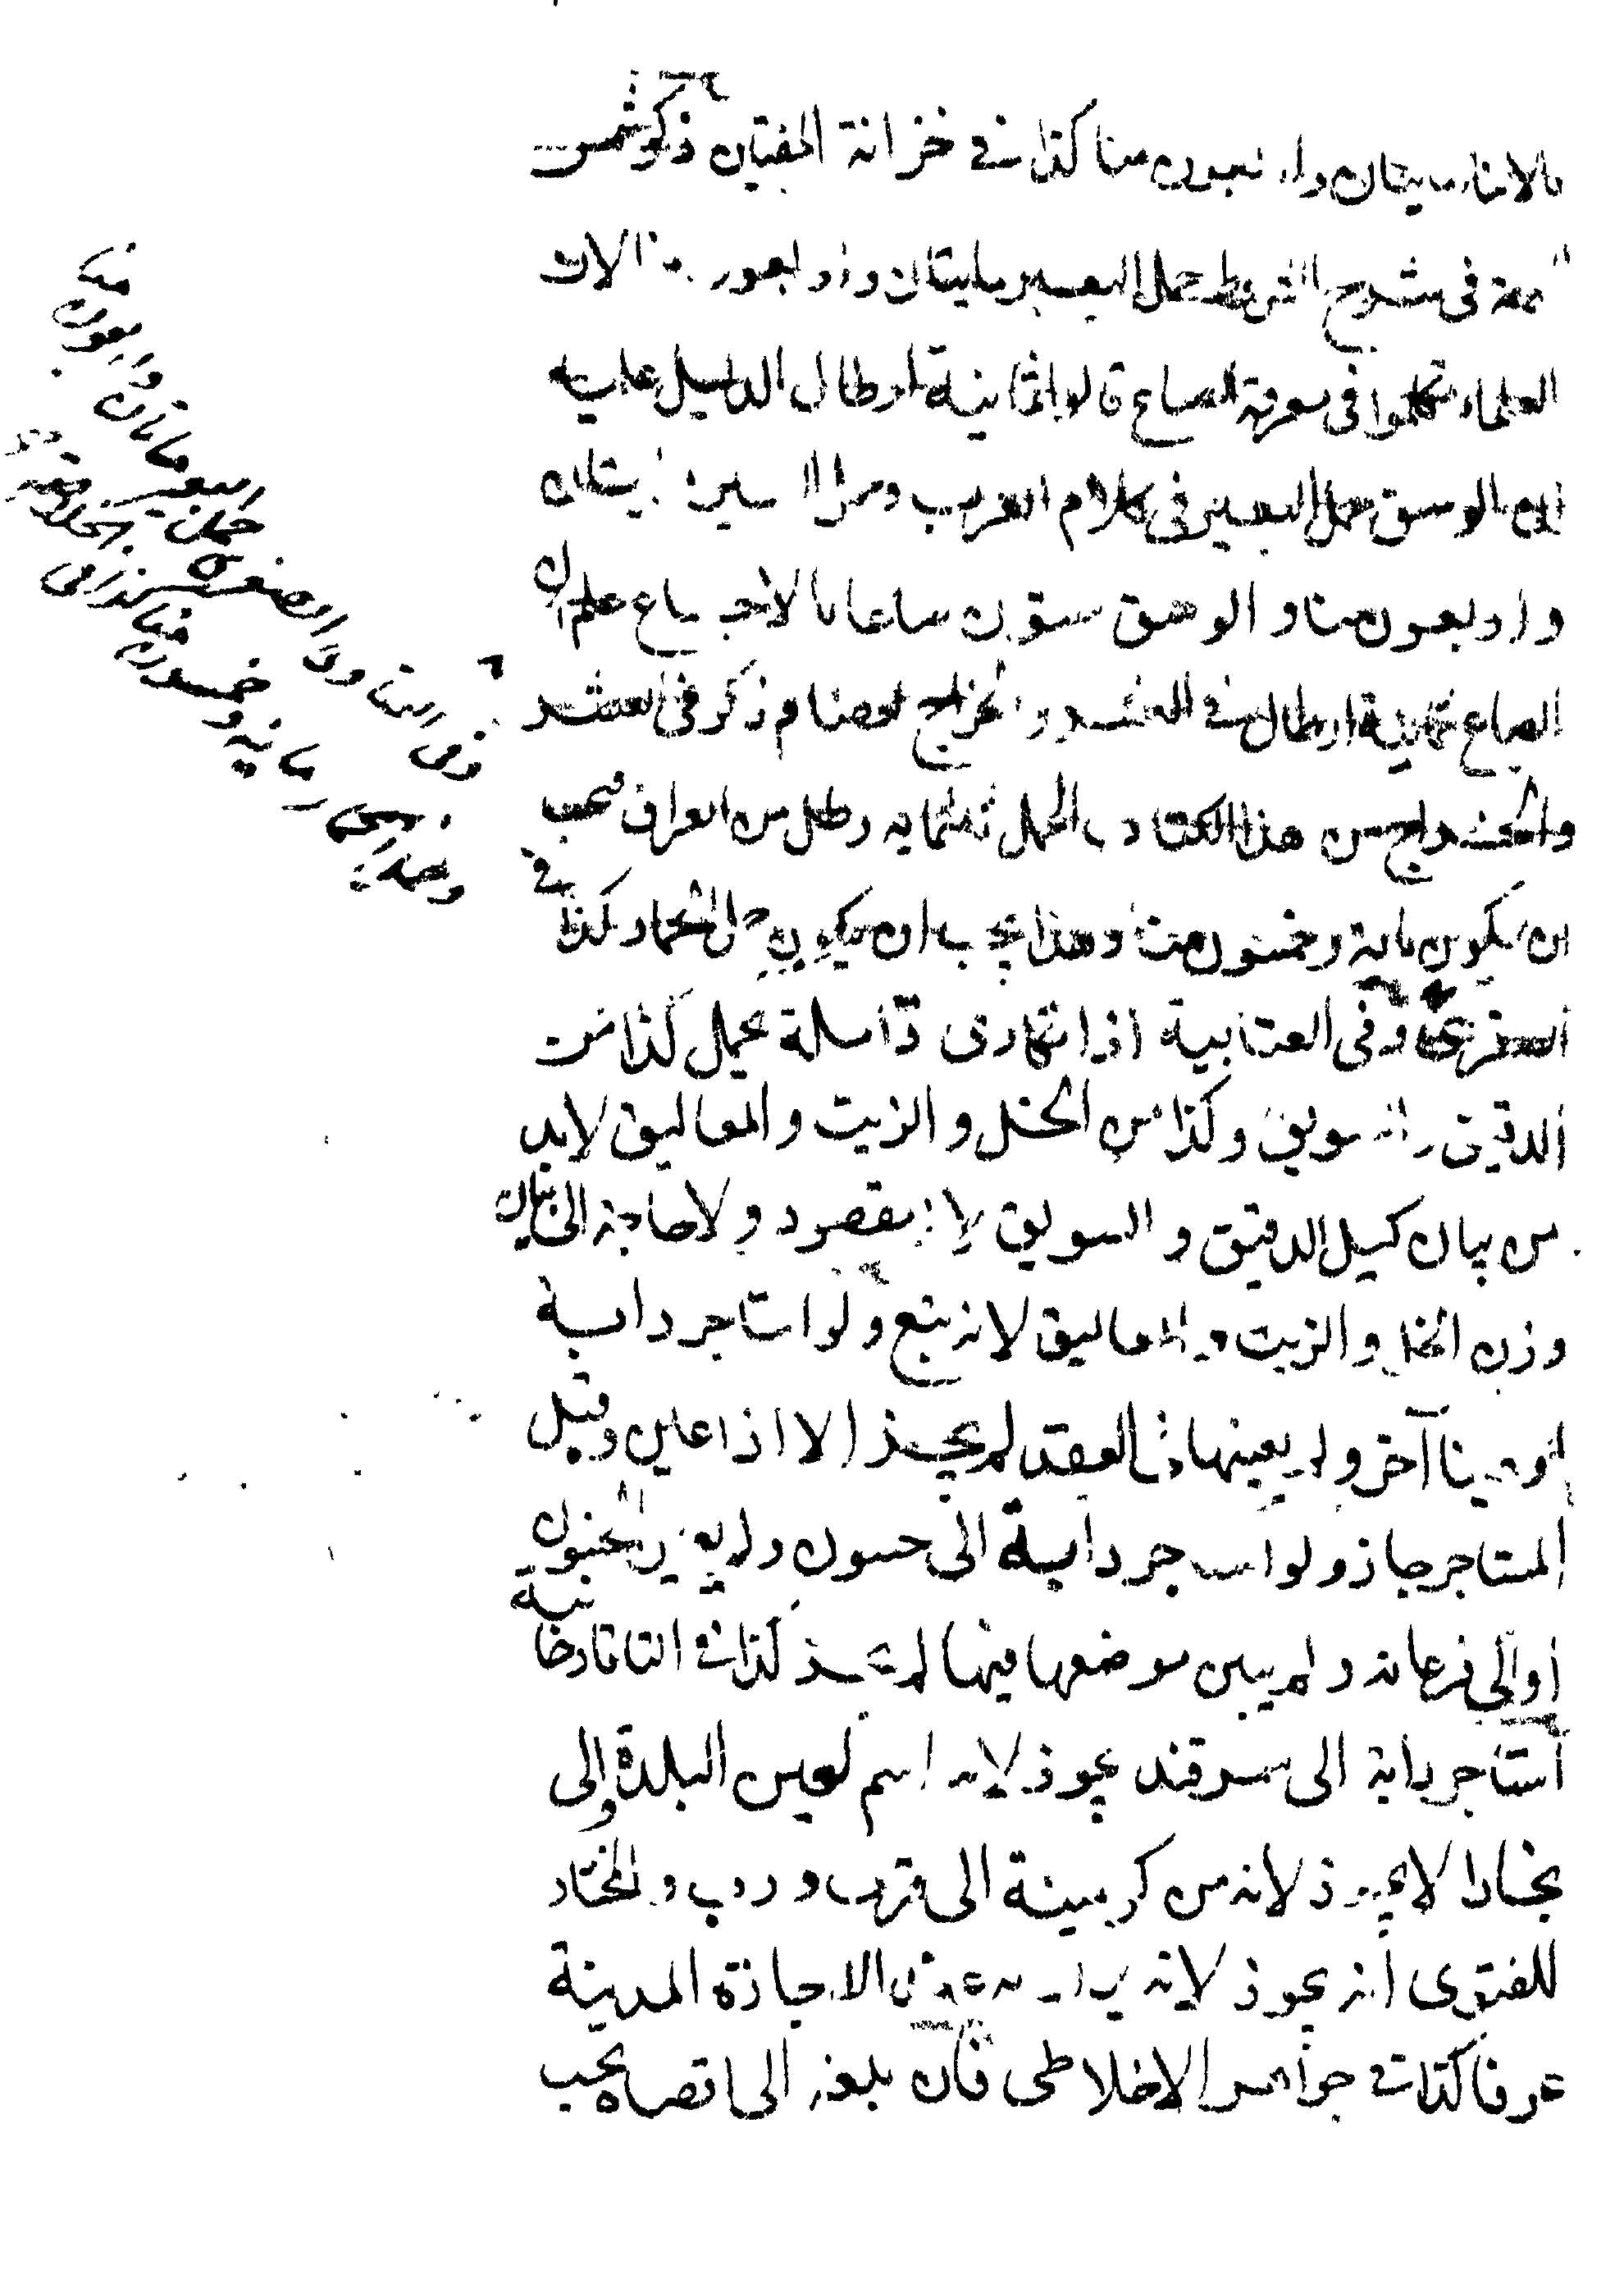 بالامنا مايتان واربعون منا كذا في خزانة المفتين ذكر شمس
الائمة في شرح الشروط حمل البعير مايتان واربعون منا لان
العلماء تكلموا في معرفة الصاع قالوا ثمانية ارطال الدليل عليه
ان الوسق حمل البعير في كلام العرب وهو مايتان
واربعون منا و الوسق ستون صاعا بالاجماع علم ان
الصاع ثمانية ارطال في العشر و الخراج لعصام ذكر في العشر
والخراج من هذا الكتاب الحمل ثلثماية رطل من العراق فيجب
ان يكون ماية وخمسون منا وهذا يجب ان يكون حمل الحمار كذا في
وفي العتابية اذا تكارى دابة يحمل كذا من
الدقيق و السويق وكذا من الخل و الزيت و المعاليق لابد
من بيان كيل الدقيق و السويق لانه مقصود ولا حاجة الى بيان
وزن الخل و الزيت و المعاليق لانه تبع و لو استاجر دابة
ولم يعينها في العقد لم يجز الا اذا عين وقبل
المستاجر جاز ولو استاجر دابة الى ولم يبين
او الى فرغانه ولم يبين موضعها فيها لم يجز كذا في التاتارخانية
استاجر دابة الى سمرقند يجوز لانه اسم لعين البلدة والى
بخارا لا يجوز لانه من كرمينة الى فرب و المختار
للفتوى انه يجوز لانه يراد به في الاجارة المدينة
عرفا كذا في جواهر الاخلاطي فان بلغه الى اقصاه يجب
حمل البعير مايتان واربعون منا
ماية وخمسون منا كذا في